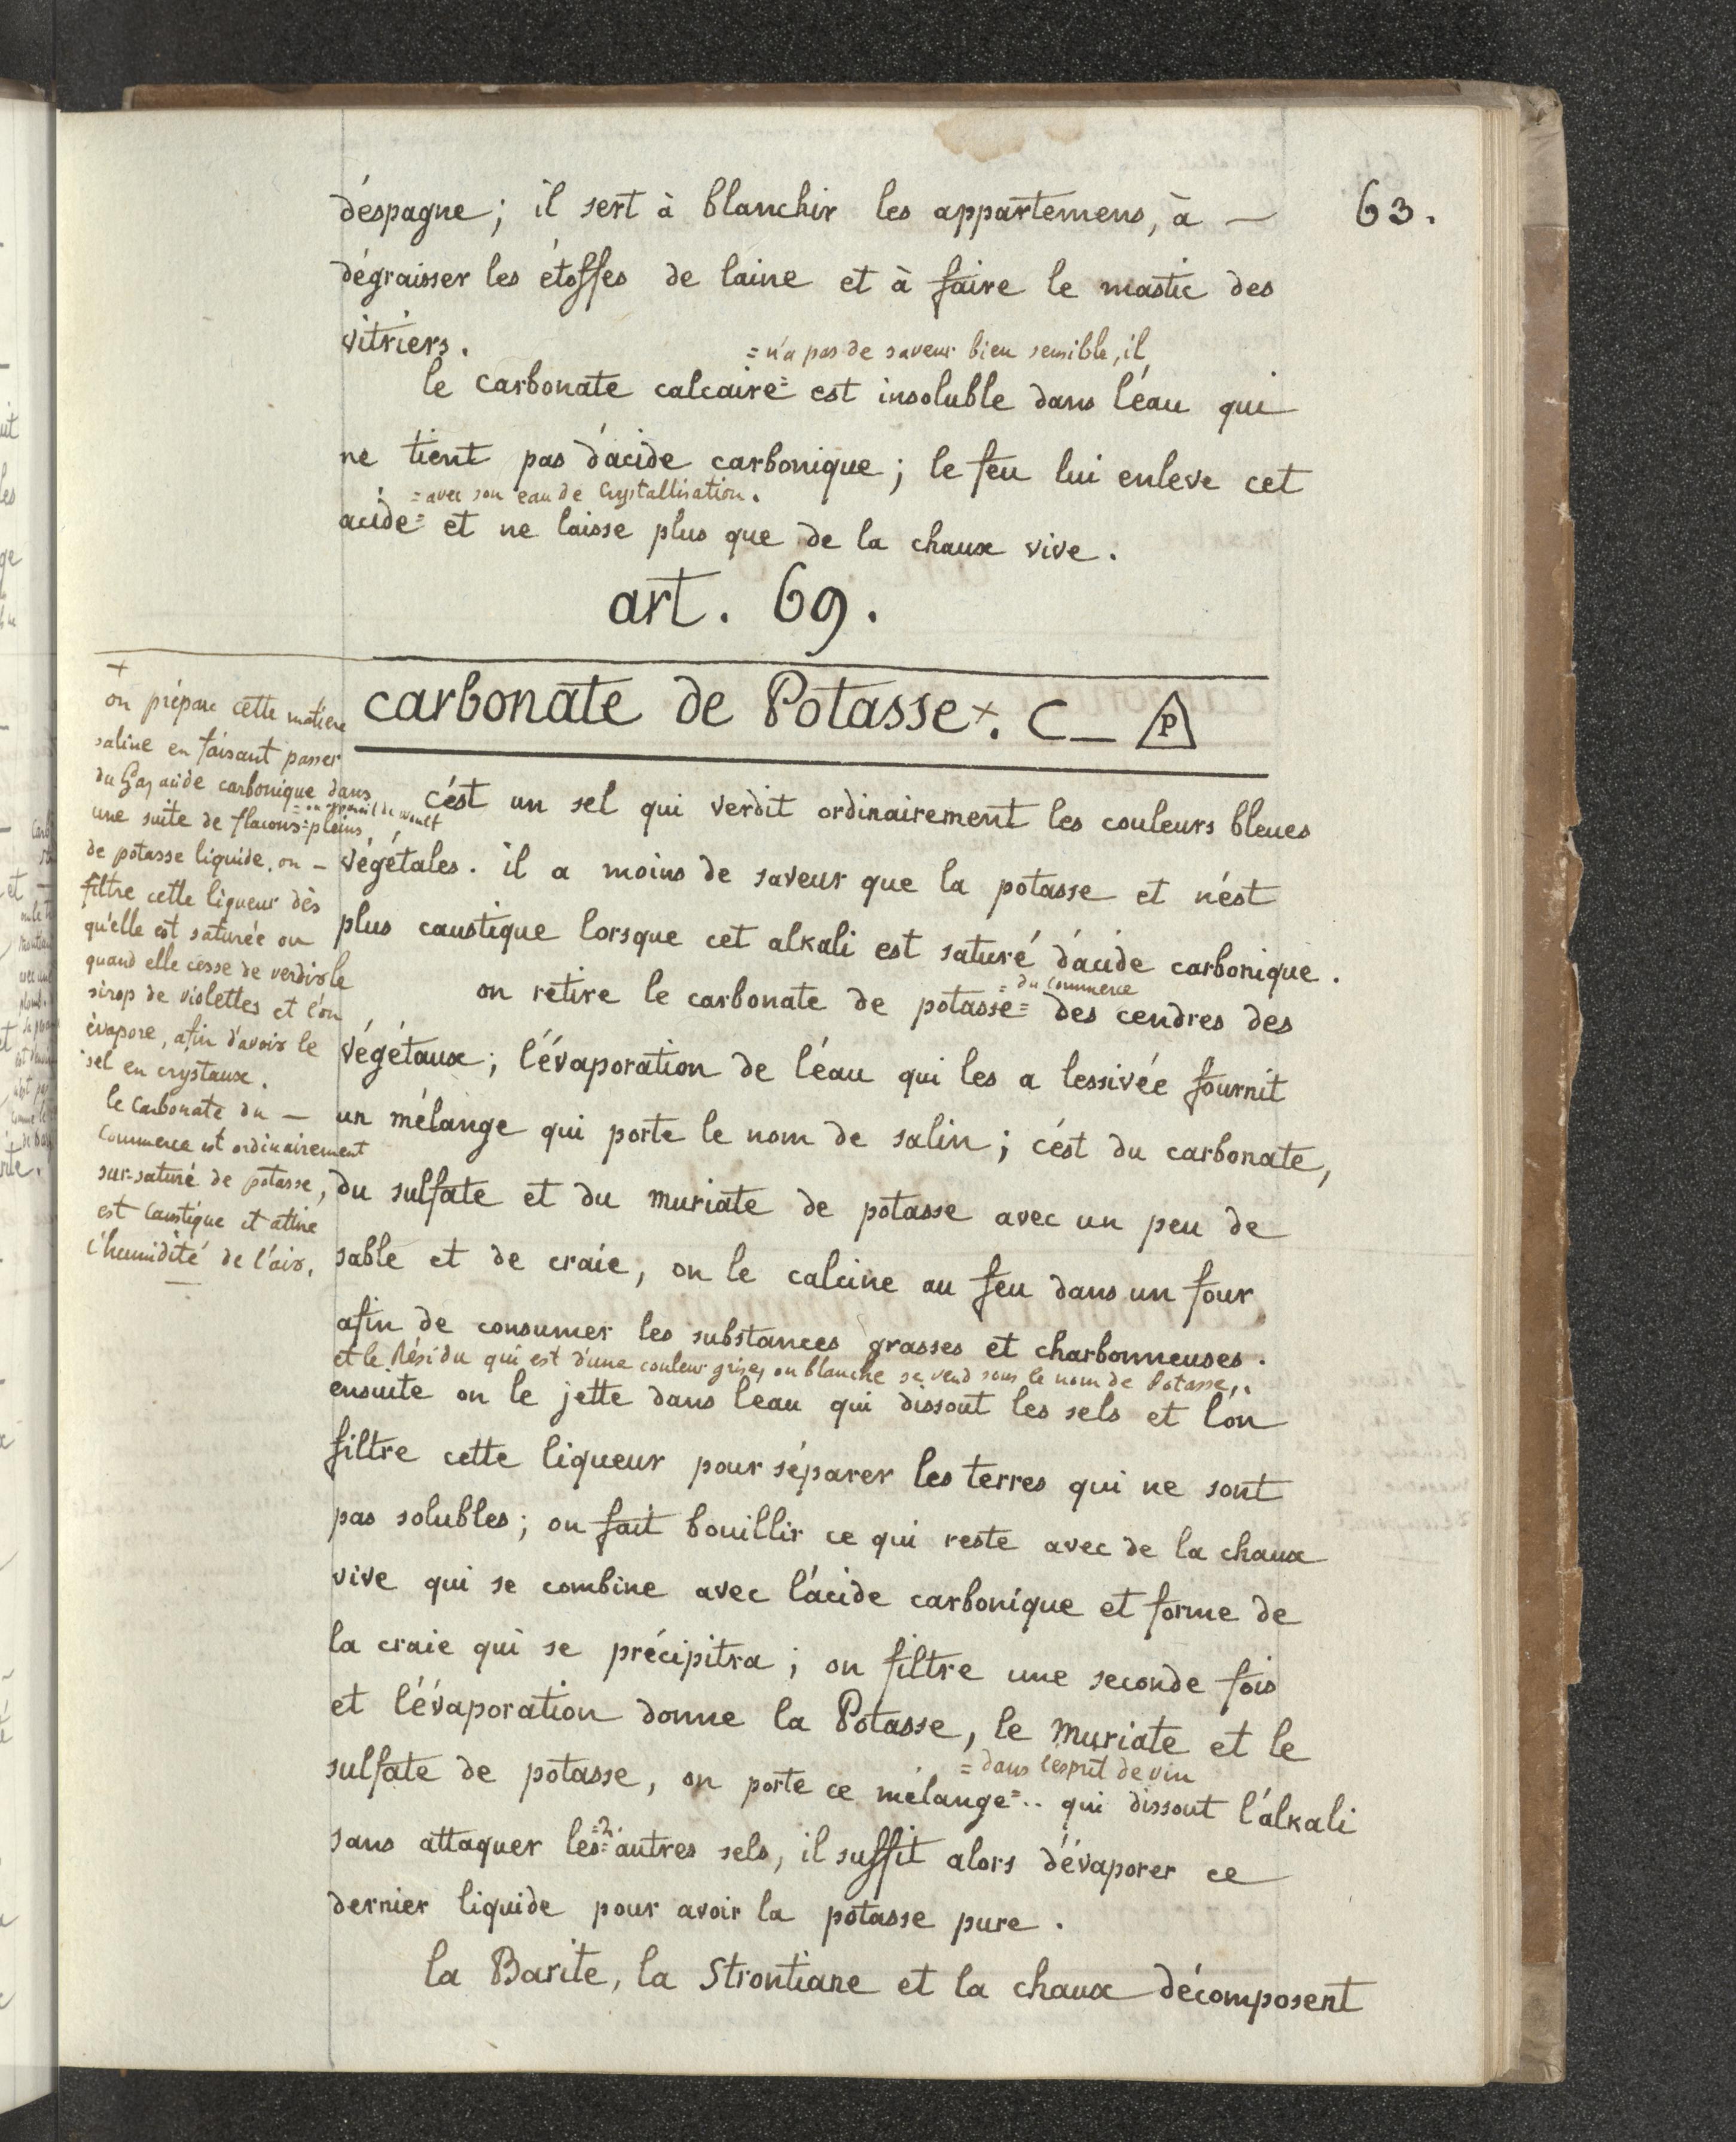 63.
d'éspagne; il sert à blanchir les appartemens, à —
dégraisser les étoffes de laine et à faire le mastic des
vitriers.
= n'a pas de saveur bien sensible, il
le carbonate calcaire= est insoluble dans l'éau qui
ne tient pas d'acide carbonique; le feu lui enleve cet
= avec son eau de Crystallisation.
acide= et ne laisse plus que de la chaux vive.
art. 69.
carbonate de Potasse+. C_ P
+
on prépare cette matiere
saline en faisant passer
du Gaz acide carbonique dans
= ou appareil de
une suite de flacons= pleins
de potasse liquide, on —
filtre cette liqueur dès
qu'elle est saturée ou
quand elle cesse de verdir le
sirop de violettes et l'on
évapore, afin d'avoir le
sel en crystaux.
le Carbonate du —
Commerce est ordinairement
sur-saturé de potasse,
est Caustique et attire
l'humidité de l'air.
c'ést un sel qui verdit ordinairement les couleurs bleues
végétales. il a moins de saveur que la potasse et n'ést
plus caustique lorsque cet alkali est saturé d'acide carbonique.
= du Commerce
on retire le carbonate de potasse= des cendres des
végétaux; l'évaporation de l'éau qui les a lessivée fournit
un mélange qui porte le nom de salin; c'ést du carbonate,
du sulfate et du muriate de potasse avec un peu de
sable et de craie, on le calcine au feu dans un four
afin de consumer les substances grasses et charbonneuses.
et le Résidu qui est d'une couleur grise, ou blanche se vend sous le nom de Potasse,.
ensuite on le jette dans l'eau qui dissout les sels et l'on
filtre cette liqueur pour séparer les terres qui ne sont
pas solubles; on fait bouillir ce qui reste avec de la chaux
vive qui se combine avec l'acide carbonique et forme de
la craie qui se précipitra; on filtre une seconde fois
et l'évaporation donne la Potasse, le muriate et le
= dans l'esprit de vin
sulfate de potasse, on porte ce mélange=.. qui dissout l'alkali
=2.
sans attaquer les= autres sels, il suffit alors d'évaporer ce
dernier liquide pour avoir la potasse pure.
la Barite, la Strontiane et la chaux décomposent